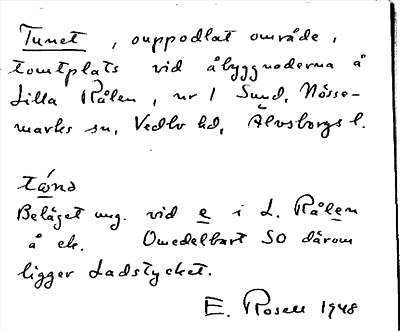 Tunet, ouppodlat område,
tomtplats vid åbyggnaderna å
Lilla Rålen, nr 1 Sund, Nösse-
marks sn, Vedbo hd, Älvsborgs l.
Beläget ung. vid e i L. Rålen
å ek. Omedelbart SO därom
ligger Ladstycket.
E. Rosell 1948